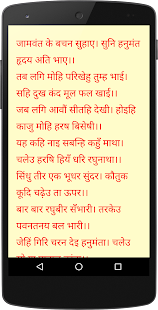 जामवंत के बचन सुहाए। सुनि हनुमंत
हृदय अति भाए।।
तब लगि मोहि परिखेहु तुम्ह भाई।
सहि दुख कंद मूल फल खाई।।
जब लगि आवौं सीतहि देखी। होइहि
काजु मोहि हरष बिसेषी।।
यह कहि नाइ सबन्हि कहुँ माथा।
चलेउ हरषि हियँ धरि रघुनाथा।।
सिंधु तीर एक भूधर सुंदर। कौतुक
कूदि चढ़ेउ ता ऊपर।।
बार बार रघुबीर सँभारी। तरकेउ
पवनतनय बल भारी।।
जेहिं गिरि चरन देइ हनुमंता। चलेउ